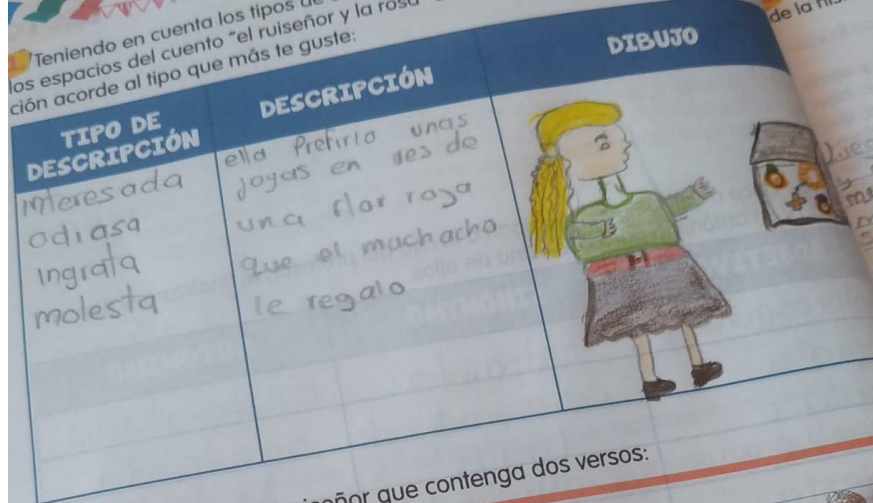 Teniendo en cuenta los tipos de
los espacios del cuento "el ruiseñor y la rosa
ción acorde al tipo que más te guste:
de la
TIPO DE
DESCRIPCIÓN
DESCRIPCIÓN
DIBUJO
interesada
odiasa
Ingrata
molesta
ella Prefirio unas
joyas en ves de
una flor roja
que el muchacho
le regalo
que contenga dos versos: